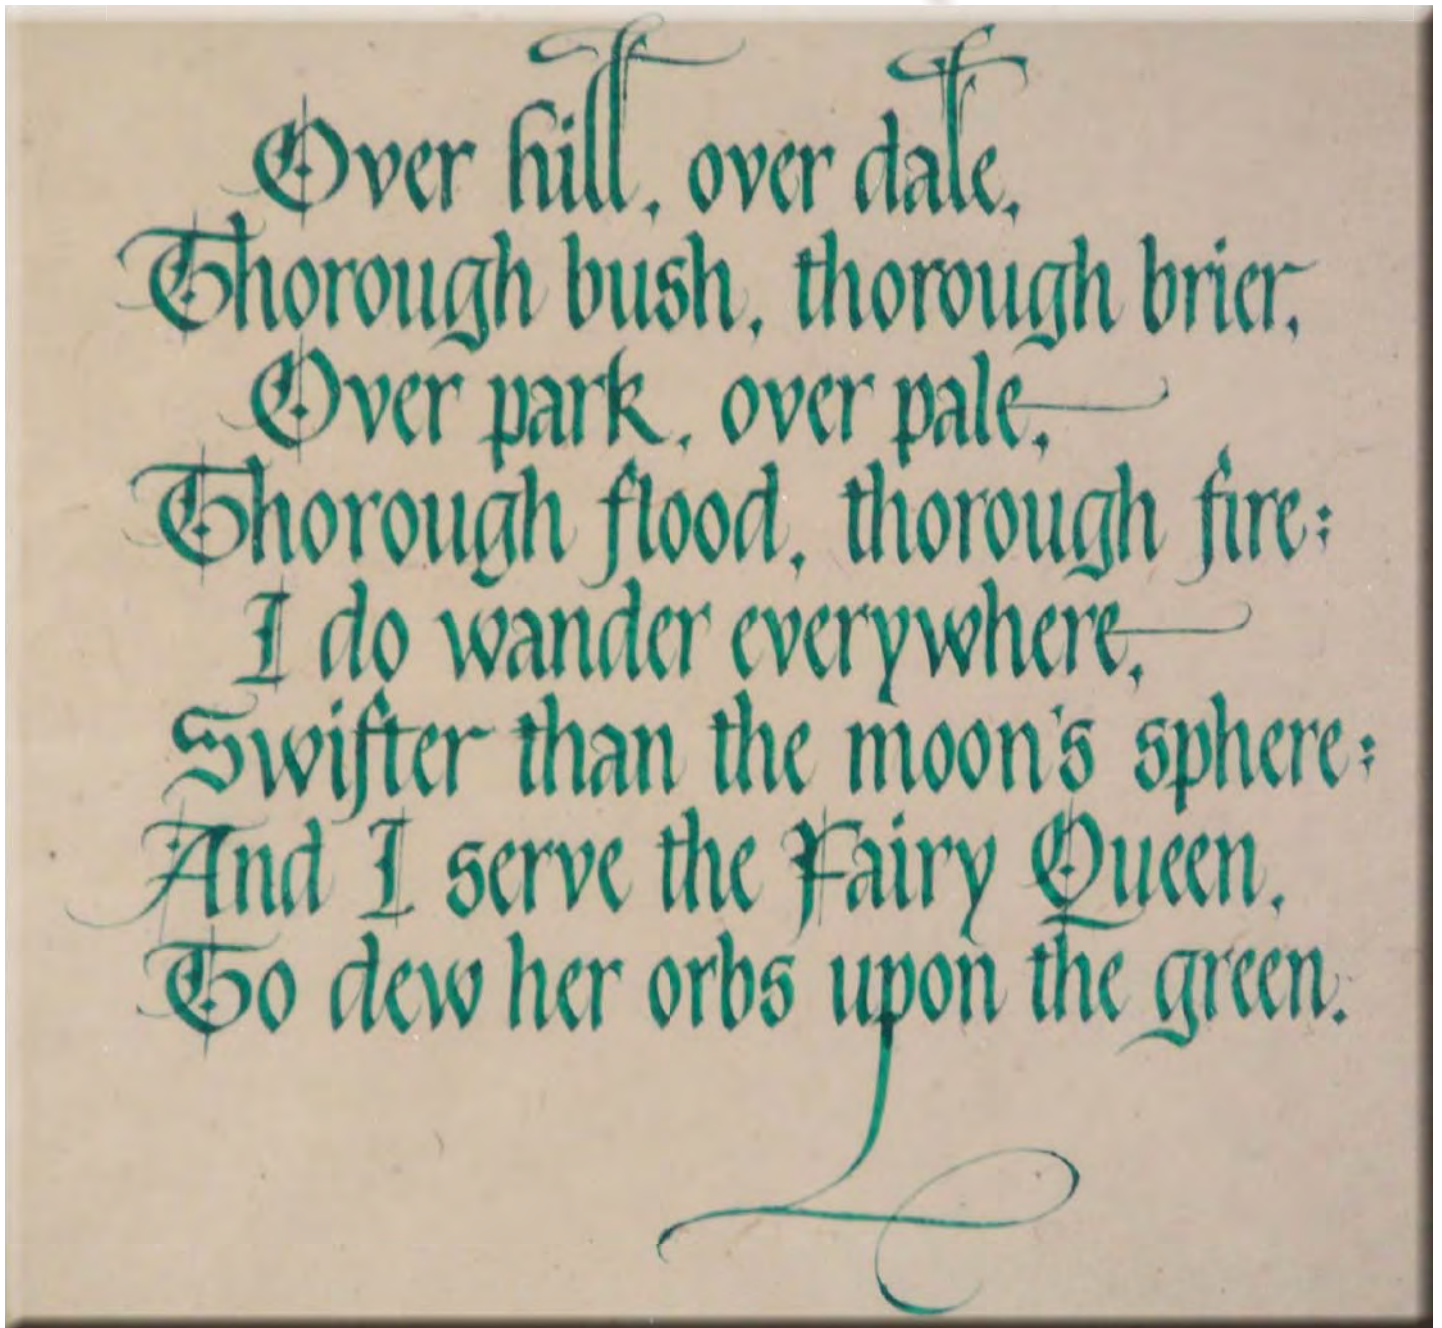 Over hill, over dale,
Thorough bush, thorough brier,
Over park, over pale,
Thorough flood, thorough fire;
I do wander everywhere,
Swifter than the moon's sphere;
And I serve the Fairy Queen,
To dew her orbs upon the green.